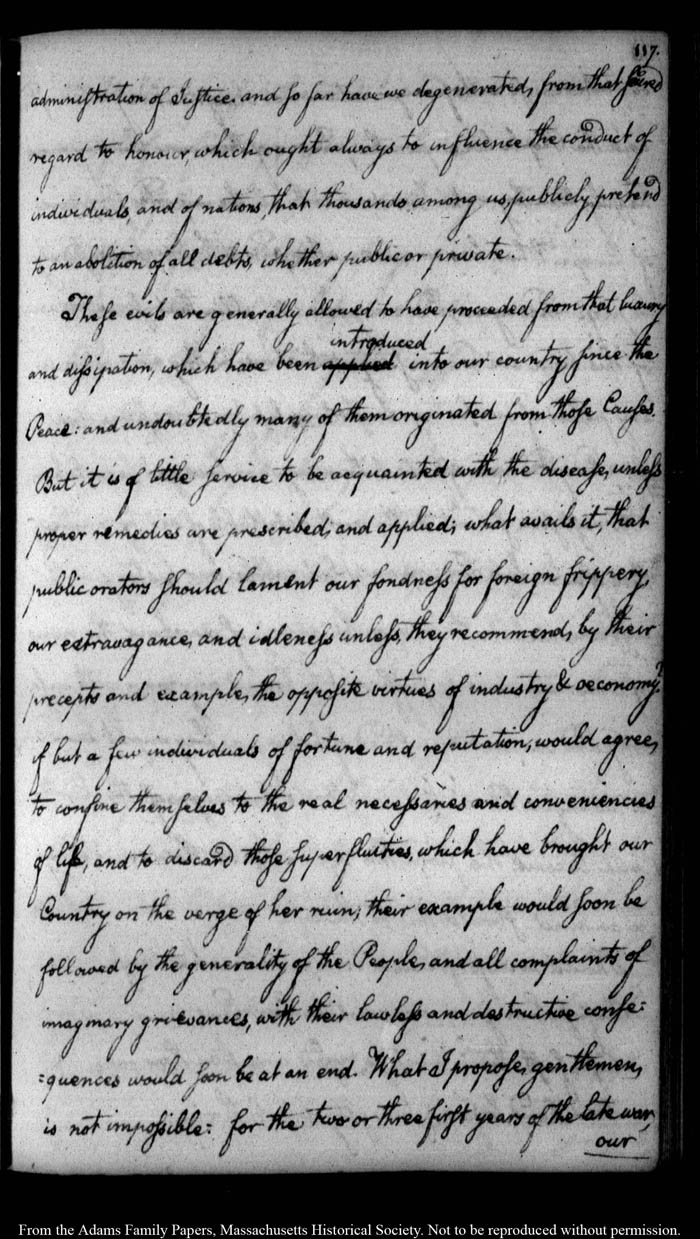 117.
administration of Justice. and so far have we degenerated, from that sacred
regard to honour, which ought always to influence the conduct of
individuals, and of nations, that thousands among us, publicly pretend
to an abolition of all debts, whether public or private.
These evils are generally allowed to have proceeded from that luxury
introduced
and dissipation, which have been applied into our country since the
Peace: and undoubtedly many of them originated from those Causes.
But it is of little service to be acquainted with the disease, unless
proper remedies are prescribed, and applied; what avails it, that
public orators should lament our fondness for foreign frippery,
our extravagance, and idleness unless, they recommend, by their
precepts and example, the opposite virtues of industry & oeconomy?
if but a few individuals of fortune and reputation, would agree,
to confine themselves to the real necessaries and conveniencies
of life, and to discard those superfluities, which have brought our
Country on the verge of her ruin, their example would soon be
followed by the generality of the People, and all complaints of
imaginary grievances, with their lawless and destructive conse:
=quences would soon be at an end. What I propose, gentlemen,
is not impossible: for the two or three first years of the late war,
our
From the Adams Family Papers, Massachusetts Historical Society. Not to be reproduced without permission.